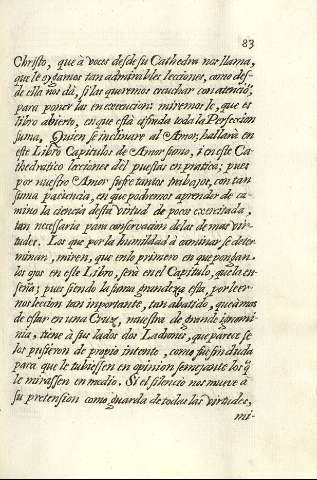 83
Christo, que à voces desde su Cathedra nos llama,
que le oygamos tan admirables lecciones, como des-
de ella nos dà, si las queremos escuchar con atenciõ;
para poner las en execucion: miremos le, que es
libro abierto, en que està cifrada toda la Perfeccion
suma. Quien se inclinare al Amor, hallarà en
este Libro Capitulos de Amor fino, i en este Ca-
thedratico lecciones del puestas en pratica; pues
por nuestro Amor sufre tantos trabajos, con tan
suma paciencia, en que podremos aprender de ca-
mino la ciencia desta virtud de pocos exercitada,
tan necessaria para conservacion de las demas vir-
tudes. Los que por la humildad à caminar se deter
minan, miren, que en lo primero en que pongan
los ojos en este Libro, serà en el Capitulo, que la en-
seña; pues siendo la suma grandeza esta, por leer-
nos leccion tan importante, tan abatido, que à mas
de estar en una Cruz, muestra de grande ignomi-
nia, tiene à sus lados dos Ladrones, que parece se
los pusieron de proprio intento, como fue sin duda
para que le tubiessen en opinion semejante los q̃
le mirassen en medio. Si el silencio nos mueve à
su pretension como guarda de todas las virtudes,
mi-